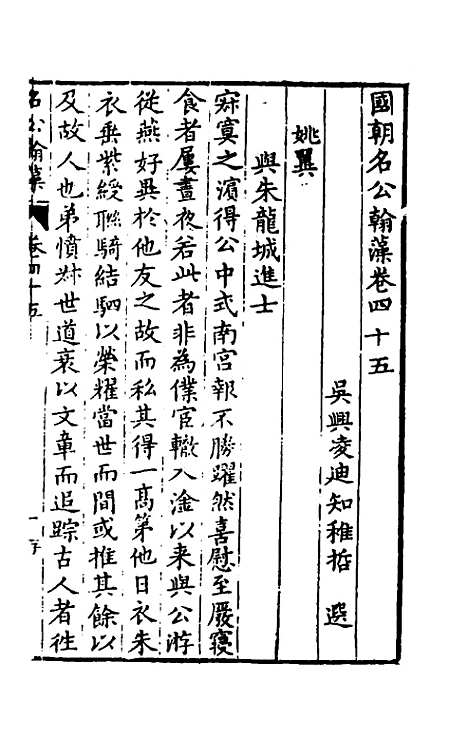 國朝名公翰藻卷四十五
吳興凌迪知稚哲 選
姚翼
與朱龍城進士
寂寞之濵得公中式南宫報不勝躍然喜慰至廢寢
食者屢晝夜若此者非為僕宦轍入淦以来與公游
從燕好異於他友之故而私其得一髙第他日衣朱
衣垂紫綬聯騎結駟以榮耀當世而間或推其餘以
及故人也弟憤㷀世道衰以文章而追踪古人者徃
名公翰藻
卷四十五
一